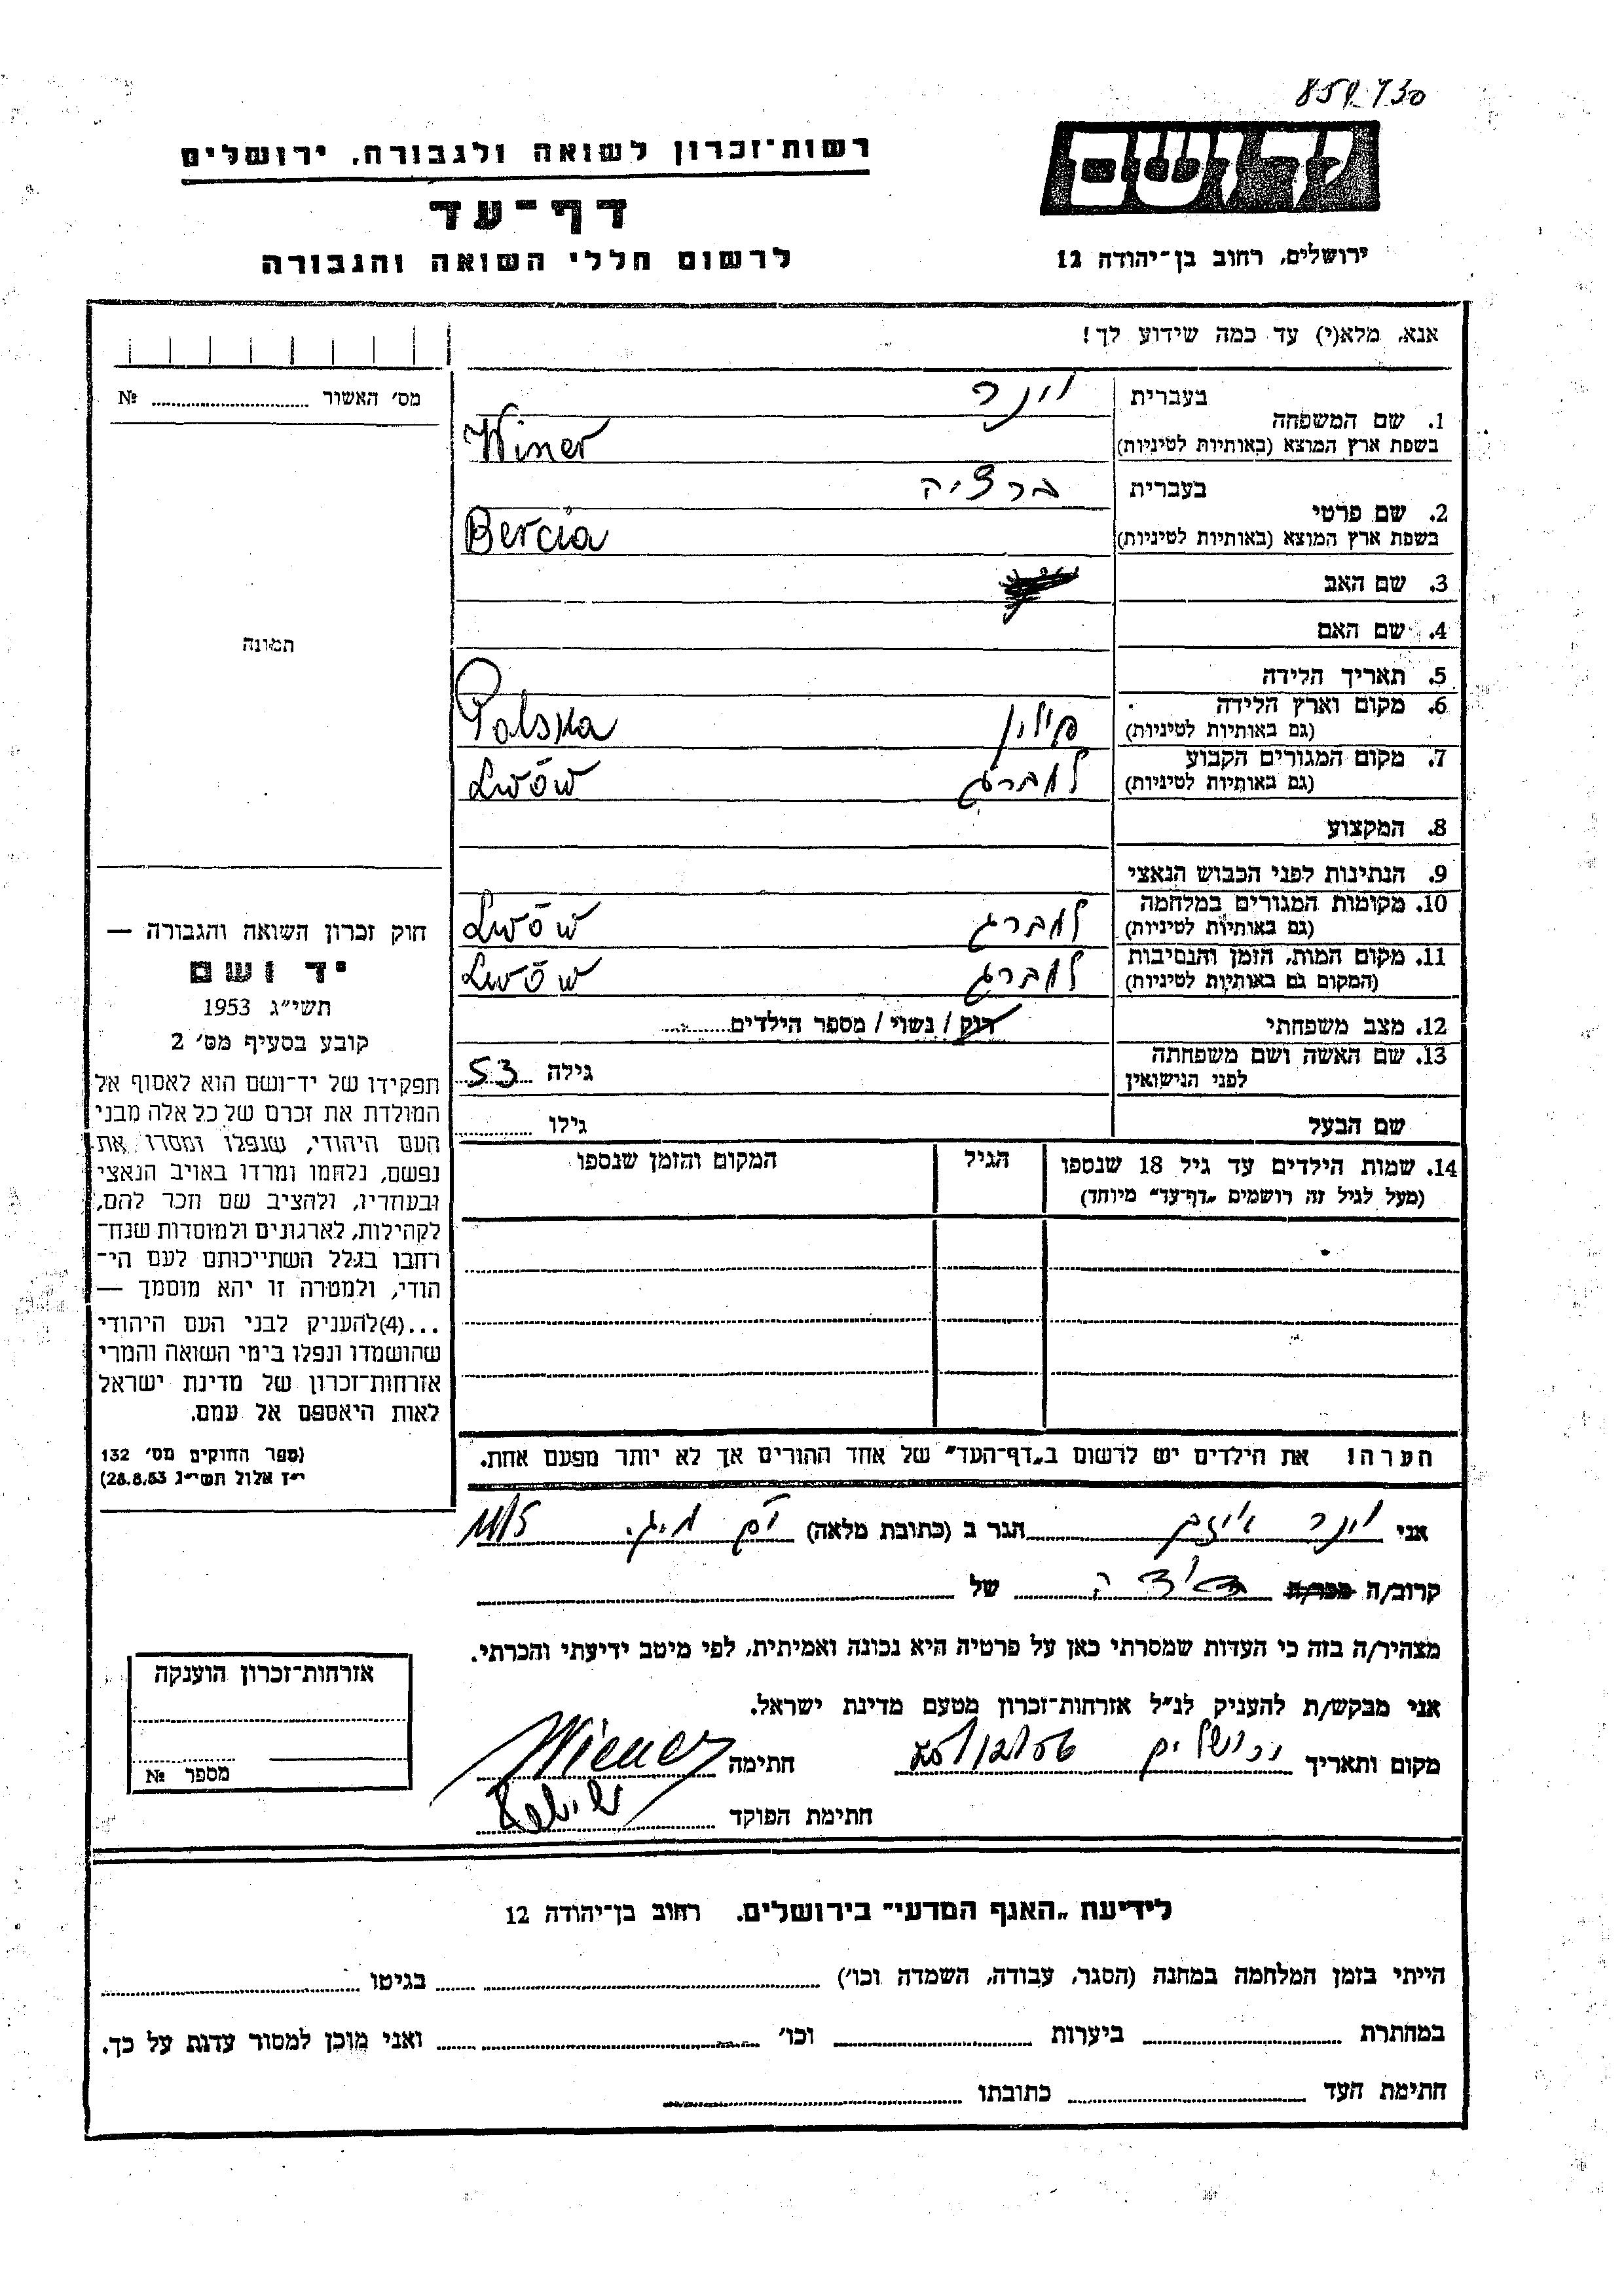 859730
רשות־זכרון לשואה ולגבורה. ירושלים
יד ושם
דף־עד
לרשום חללי השואה והגבורה
ירושלים, רחוב בן־יהודה 12
אנא, מלא(י) עד כמה שידוע לך!
מס׳ האשור № 
בעברית וינר
1. שם המשפחה
בשפת ארץ המוצא (באותיות לטיניות) Winer
בעברית ברציה
2. שם פרטי
בשפת ארץ המוצא (באותיות לטיניות) Bercia
3. שם האב
4. שם האם
תמונה
5. תאריך הלידה
6. מקום וארץ הלידה פולין Polska
(גם באותיות לטיניות)
7. מקום המגורים הקבוע למברג Lwów
(גם באותיות לטיניות)
8. המקצוע
9. הנתינות לפני הכבוש הנאצי
10. מקומות המגורים במלחמה למברג Lwów
(גם באותיות לטיניות)
11. מקום המות, הזמן והנסיבות למברג Lwów
(המקום גם באותיות לטיניות)
12. מצב משפחתי רוק / נשוי / מספר הילדים
13. שם האשה ושם משפחתה גילה 53
לפני הנישואין
שם הבעל גילו
14. שמות הילדים עד גיל 18 שנספו הגיל המקום והזמן שנספו
(מעל לגיל זה רושמים „דף־עד״ מיוחד)
חוק זכרון השואה והגבורה —
יד ושם
תשי״ג 1953
קובע בסעיף מס׳ 2
תפקידו של יד־ושם הוא לאסוף אל
המולדת את זכרם של כל אלה מבני
העם היהודי, שנפלו ומסרו את
נפשם, נלחמו ומרדו באויב הנאצי
ובעוזריו, ולהציב שם וזכר להם,
לקהילות, לארגונים ולמוסדות שנח־
רחבו בגלל השתייכותם לעם הי־
הודי, ולמטרה זו יהא מוסמך —
...(4)להעניק לבני העם היהודי
שהושמדו ונפלו בימי השואה והמרי
אזרחות־זכרון של מדינת ישראל
לאות היאספם אל עמם.
(ספר החוקים מס׳ 132
י״ז אלול תשי״ג 28.8.53)
הערה! את הילדים יש לרשום ב„דף־העד״ של אחד ההורים אך לא יותר מפעם אחת.
אני וינר הגר ב (כתובת מלאה)
קרוב/ה מכר/ה של
מצהיר/ה בזה כי העדות שמסרתי כאן על פרטיה היא נכונה ואמיתית, לפי מיטב ידיעתי והכרתי.
אני מבקש/ת להעניק לנ״ל אזרחות־זכרון מטעם מדינת ישראל.
מקום ותאריך ירושלים חתימה Wiener
חתימת הפוקד
אזרחות־זכרון הוענקה
מספר №
לידיעת „האגף המדעי״ בירושלים. רחוב בן־יהודה 12
הייתי בזמן המלחמה במחנה (הסגר, עבודה, השמדה וכו׳) בגיטו
במחתרת ביערות וכו׳ ואני מוכן למסור עדות על כך.
חתימת העד כתובתו